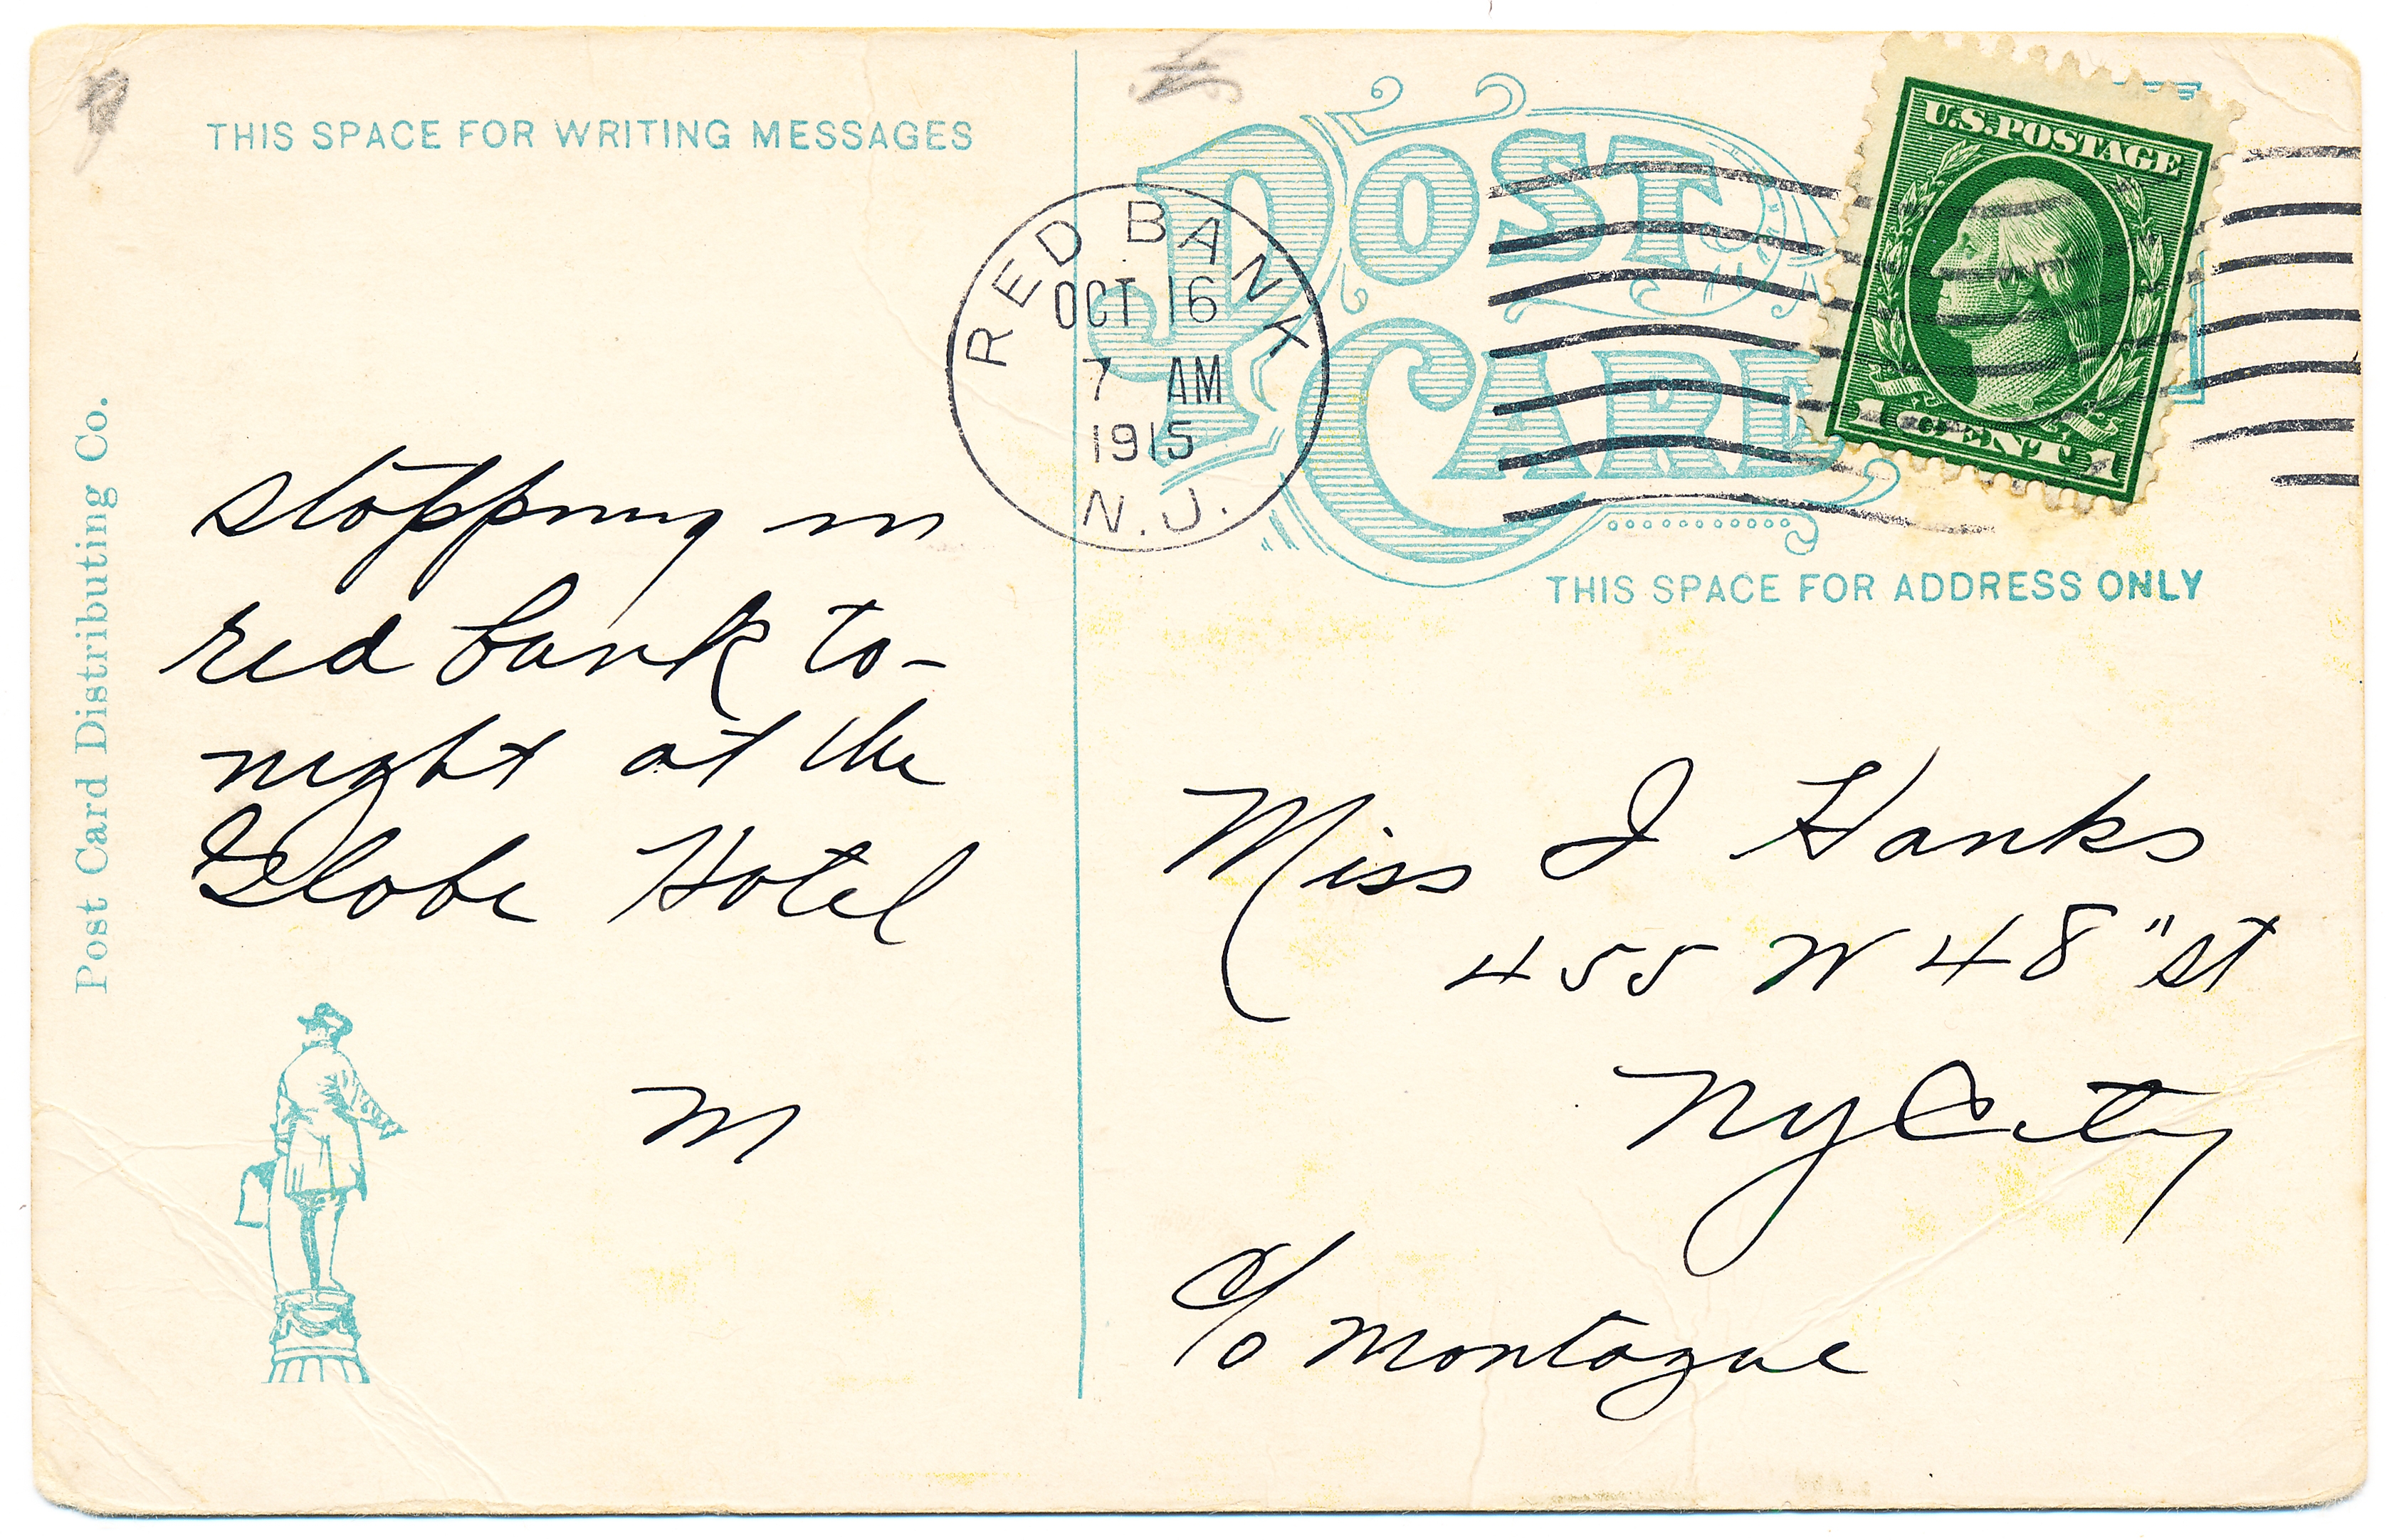 THIS SPACE FOR WRITING MESSAGES
Post Card Distributing Co.
stopping in
red bank to-
night at the
Globe Hotel
M
RED BANK
OCT 16
7 AM
1915
N.J.
POST
CARD
U.S. POSTAGE
1 CENT 1
THIS SPACE FOR ADDRESS ONLY
Miss J Hanks
455 W 48" st
NY City
c/o Montague